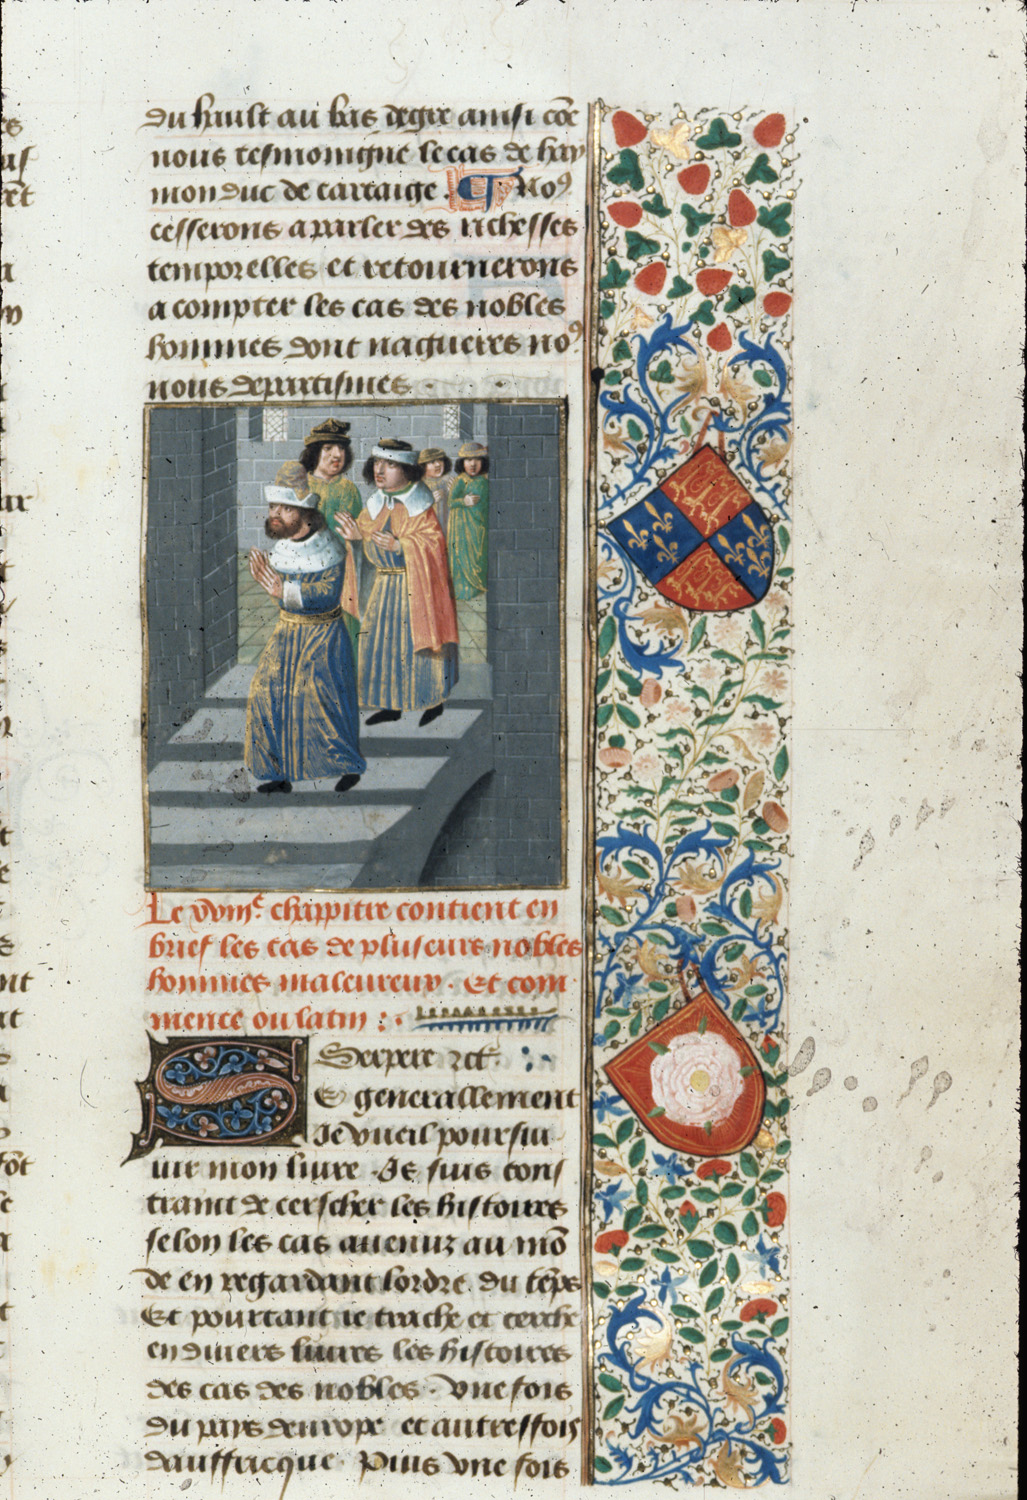 du hault au bas degre ainsi cõe
nous tesmoingne le cas de hay
mon duc de cartaige. ¶ Noꝰ
cesserons a parler des richesses
temporelles et retournerons
a compter les cas des nobles
hommes dont nagueres noꝰ
nous departismes.
Le chappitre contient en
brief les cas de pluseurs nobles
hommes maleureux. Et com
mence ou latin :.
Serpere
SE generallement
Je vueil poursui
uir mon liure. Je suis cons
traint de cerscher les histoires
selon les cas auenuz au mõ
de en regardant lordre du tẽps
Et pourtant ie trache et cerche
en diuers liures les histoires
des cas des nobles. vne fois
du pays deurope et autreffois
dauffricque. Puis vne fois